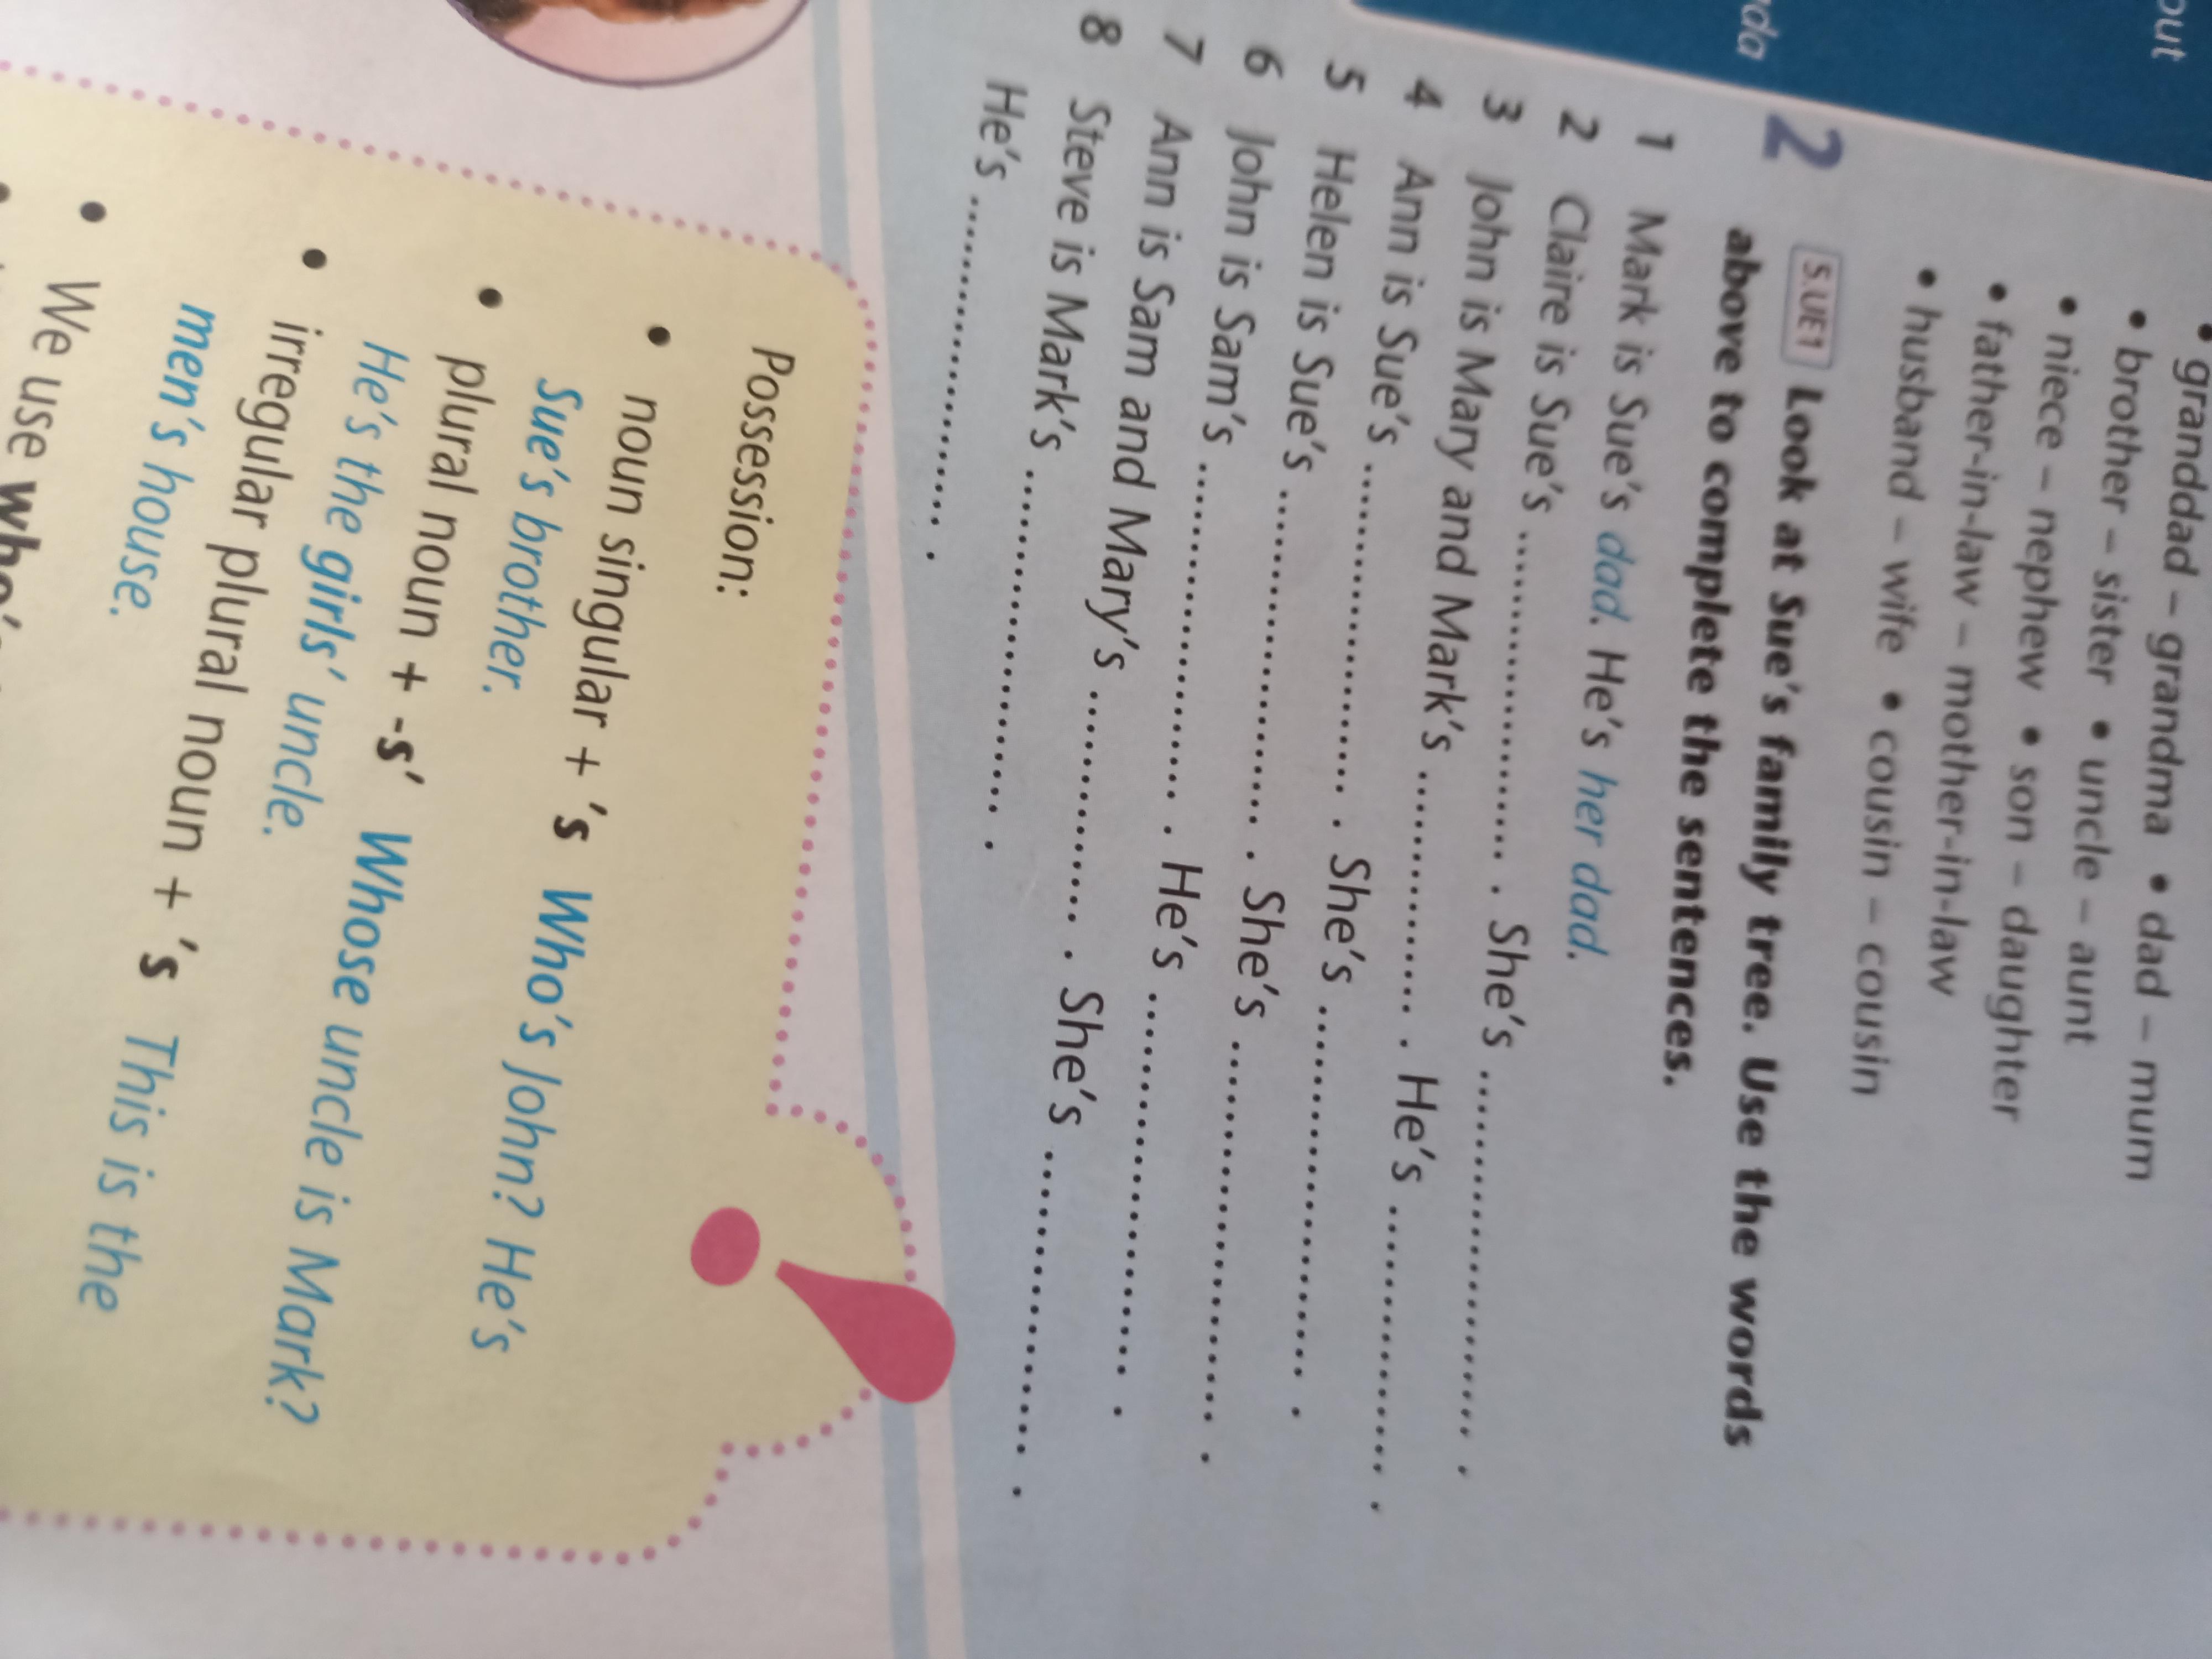 • granddad – grandma • dad – mum
• brother – sister • uncle – aunt
• niece – nephew • son – daughter
• father-in-law – mother-in-law
• husband – wife • cousin – cousin
2 S.UE1 Look at Sue's family tree. Use the words
above to complete the sentences.
1 Mark is Sue's dad. He's her dad.
2 Claire is Sue's .................... . She's .................... .
3 John is Mary and Mark's .................... . He's .................... .
4 Ann is Sue's .................... . She's .................... .
5 Helen is Sue's .................... . She's .................... .
6 John is Sam's .................... . He's .................... .
7 Ann is Sam and Mary's .................... . She's .................... .
8 Steve is Mark's .................... .
He's .................... .
Possession:
• noun singular + 's Who's John? He's
Sue's brother.
• plural noun + -s' Whose uncle is Mark?
He's the girls' uncle.
• irregular plural noun + 's This is the
men's house.
• We use who's